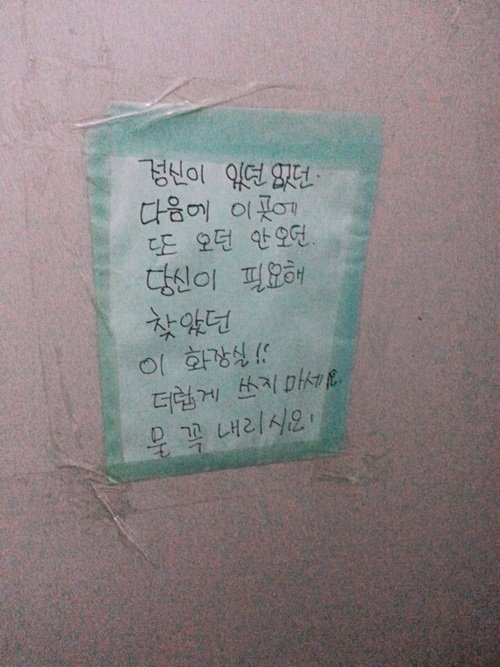 정신이 있던 없던.
다음에 이곳에
또 오던 안오던.
당신이 필요해
찾았던
이 화장실!!
더럽게 쓰지마세요.
물 꼭 내리시오.